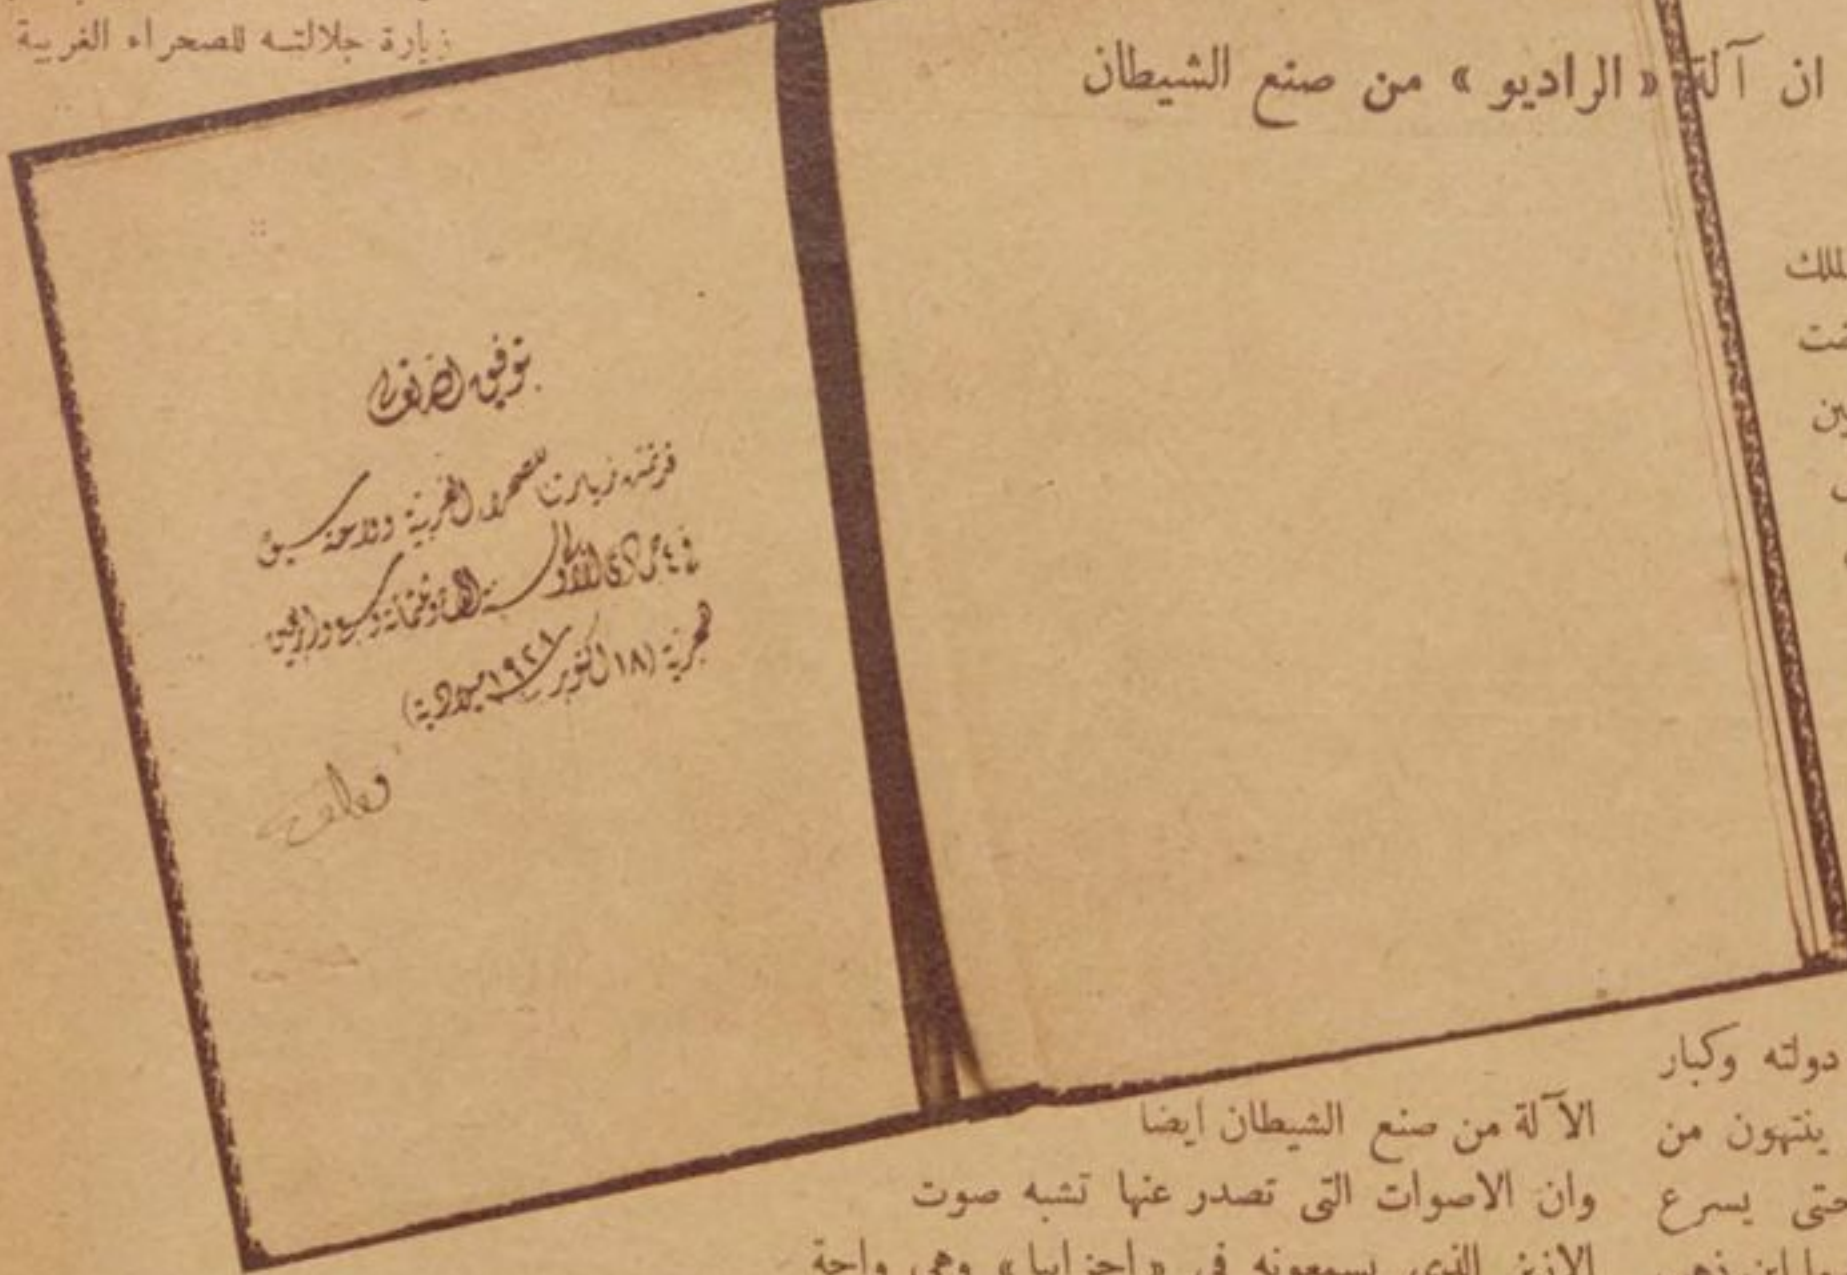 زيارة جلالته للصحراء الغربية
ان آلة « الراديو » من صنع الشيطان
بتوفيق الله تعالى
قد تمت زيارتنا للصحراء الغربية وواحة سيوة
في ٤ جمادى الاولى سنة الف وثلثمائة وسبع واربعين
هجرية (١٨ اكتوبر ١٩٢٨ ميلادية)
دولته وكبار
ينتهون من
حتى يسرع
الآلة من صنع الشيطان ايضا
وان الاصوات التى تصدر عنها تشبه صوت
الذى يسمعونه فى وهى واحة